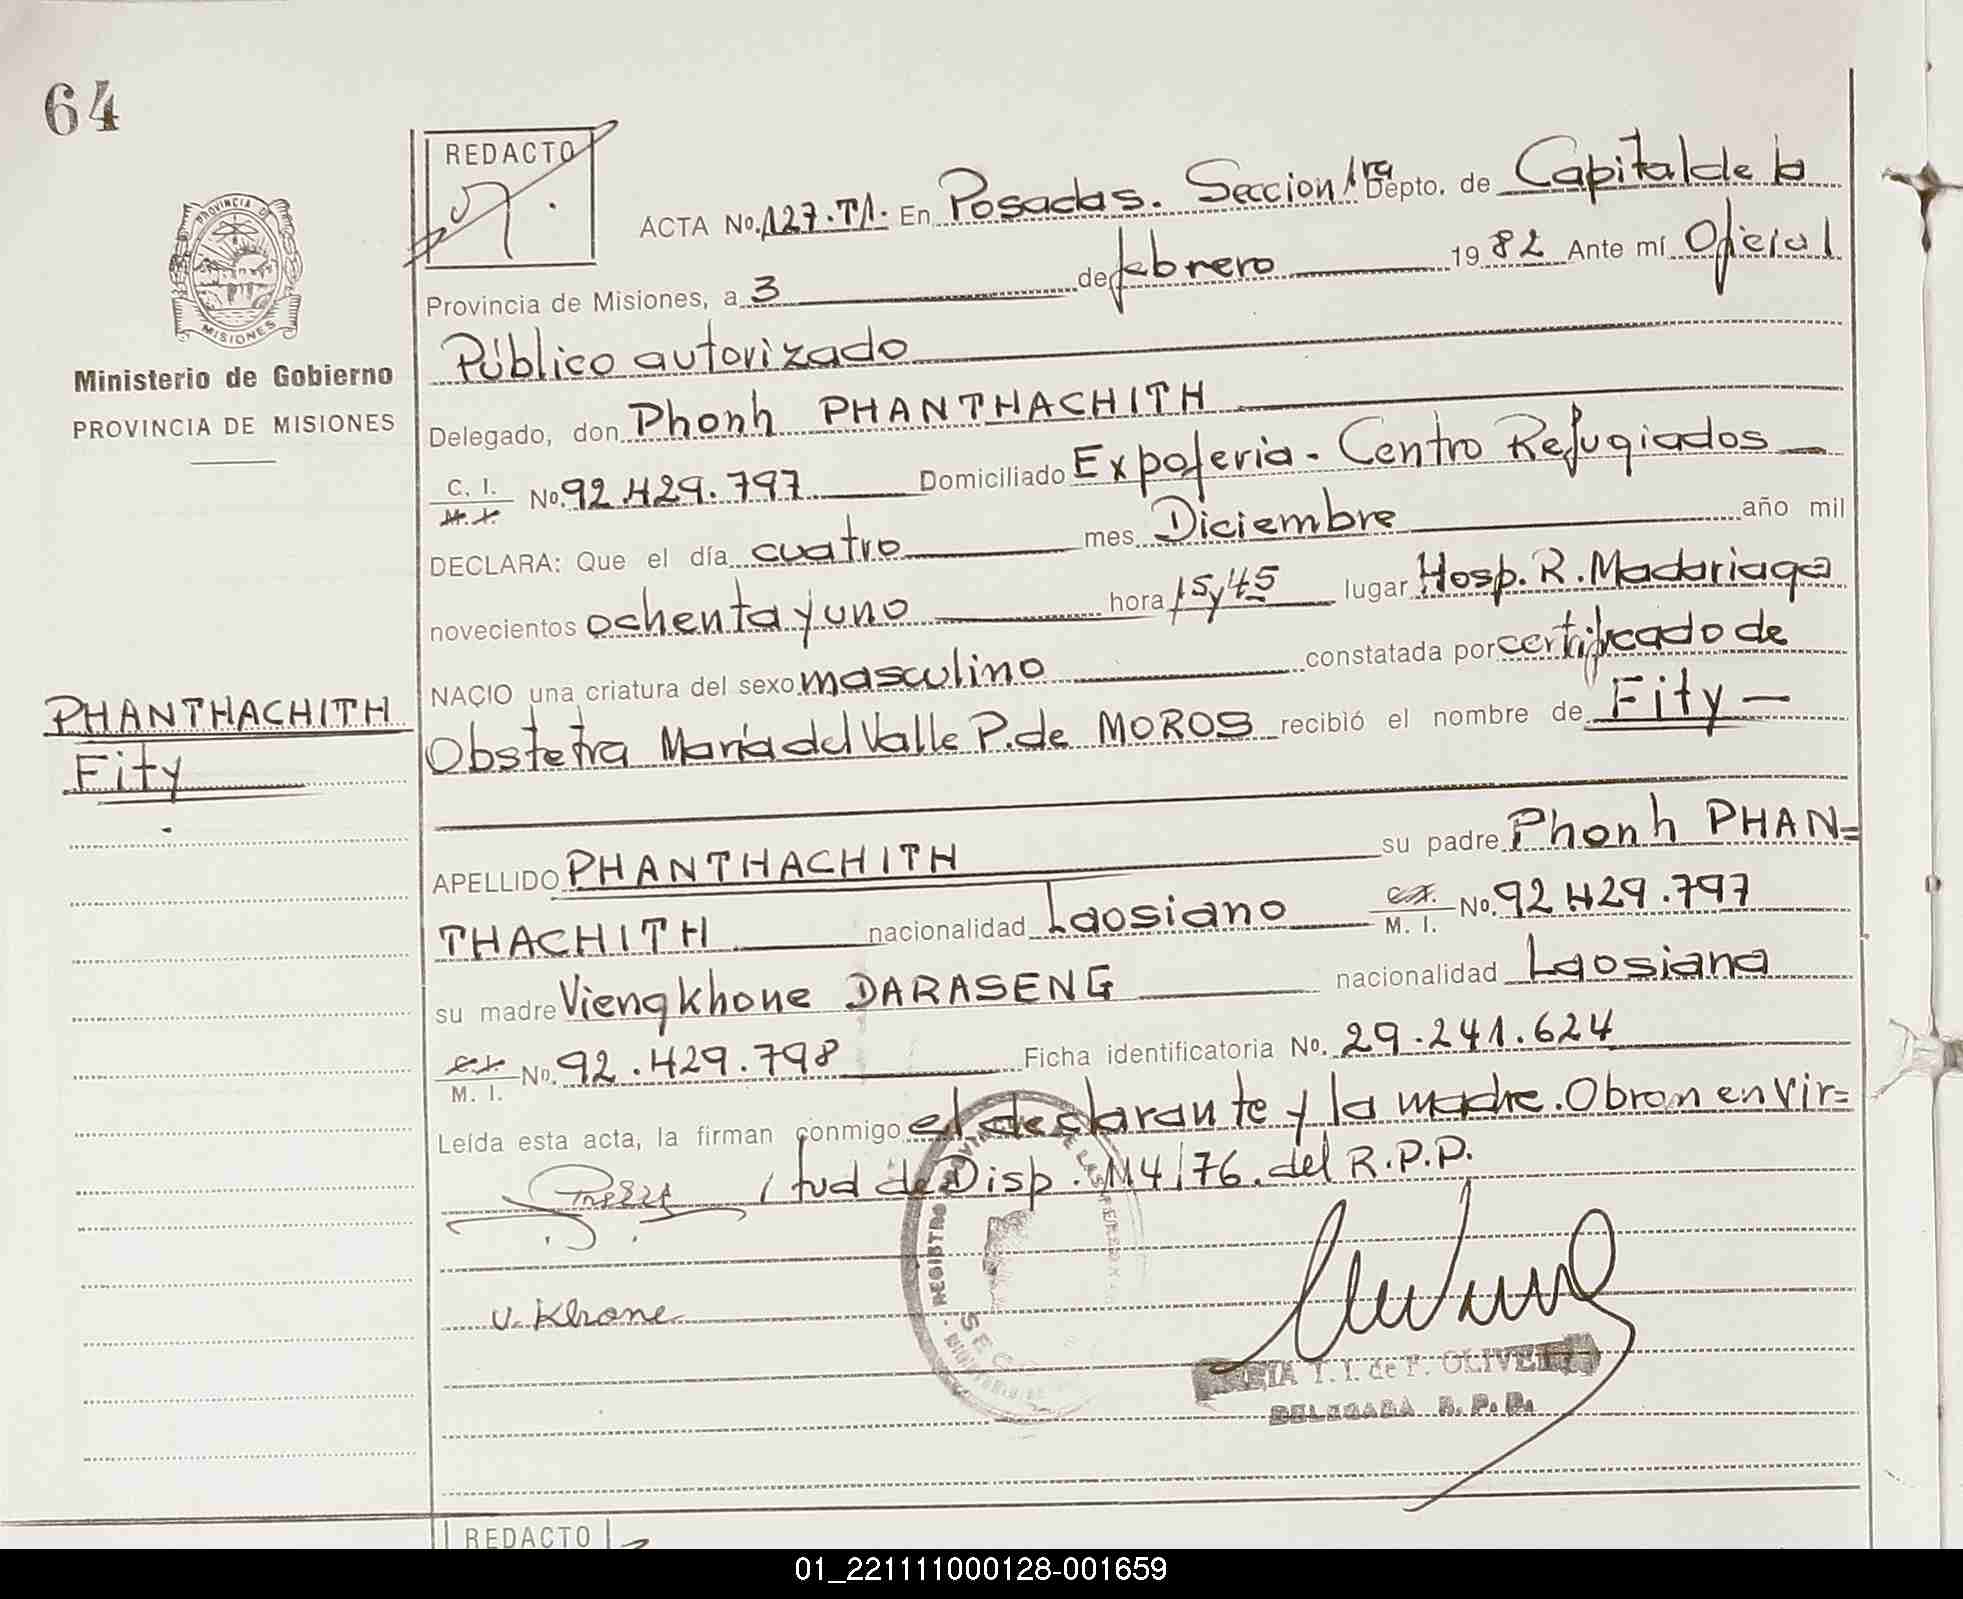 64
REDACTO
ACTA No. 127.T1. En Posadas. Seccion 1ra Depto. de Capital de la
Provincia de Misiones, a 3 de febrero 1982 Ante mí Oficial
Público autorizado
Delegado, don Phonh PHANTHACHITH
C. I. No. 92.429.797 Domiciliado Expoferia - Centro Refugiados
M. I.
DECLARA: Que el día cuatro mes Diciembre año mil
novecientos ochenta y uno hora 15y45 lugar Hosp. R. Madariaga
NACIO una criatura del sexo masculino constatada por certificado de
Obstetra María del Valle P. de MOROS recibió el nombre de Fity
APELLIDO PHANTHACHITH su padre Phonh PHAN=
THACHITH nacionalidad Laosiano C.I. M. I. No. 92.429.797
su madre Viengkhone DARASENG nacionalidad Laosiana
C.I. M. I. No. 92.429.798 Ficha identificatoria No. 29.241.624
Leída esta acta, la firman conmigo el declarante y la madre. Obran en vir=
tud de Disp. 114/76. del R.P.P.
V. Khone
T. I. de P. OLIVE
DELEGADA R. P. P.
REGISTRO
PROVINCIA DE
MISIONES
Ministerio de Gobierno
PROVINCIA DE MISIONES
PHANTHACHITH
Fity
REDACTO
01_221111000128-001659